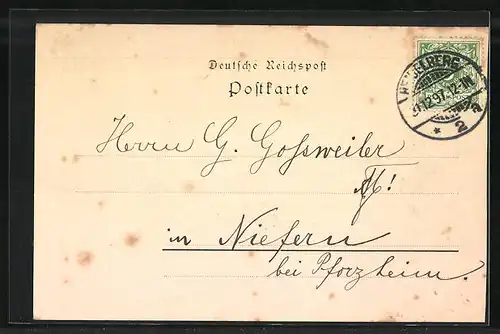 Deutsche Reichspost
Postkarte
HEIDELBERG
31.12.97.12-1N
* 2 a
Herrn G. Gossweiler
in Niefern
bei Pforzheim.